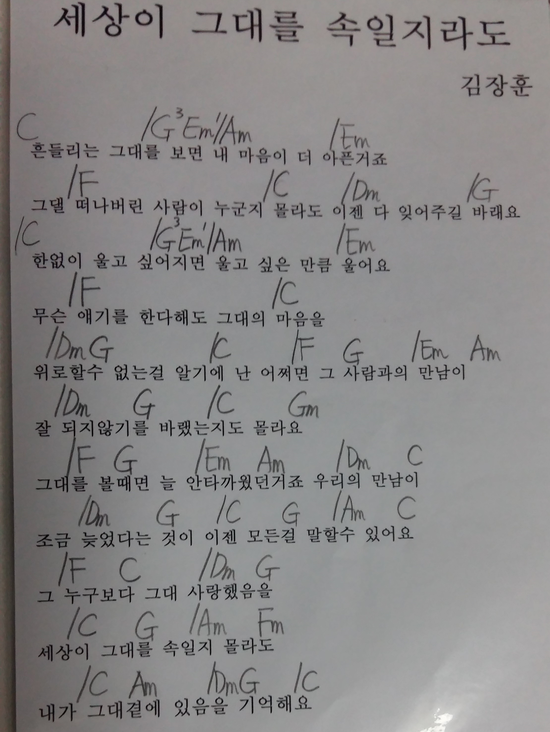 세상이 그대를 속일지라도
김장훈
C /G³ Em¹ /Am /Em
흔들리는 그대를 보면 내 마음이 더 아픈거죠
/F /C /Dm /G
그댈 떠나버린 사람이 누군지 몰라도 이젠 다 잊어주길 바래요
/C /G³ Em¹ /Am /Em
한없이 울고 싶어지면 울고 싶은 만큼 울어요
/F /C
무슨 얘기를 한다해도 그대의 마음을
/Dm G /C /F G /Em Am
위로할수 없는걸 알기에 난 어쩌면 그 사람과의 만남이
/Dm G /C Gm
잘 되지않기를 바랬는지도 몰라요
/F G /Em Am /Dm C
그대를 볼때면 늘 안타까웠던거죠 우리의 만남이
/Dm G /C G /Am C
조금 늦었다는 것이 이젠 모든걸 말할수 있어요
/F C /Dm G
그 누구보다 그대 사랑했음을
/C G /Am Fm
세상이 그대를 속일지 몰라도
/C Am /Dm G /C
내가 그대곁에 있음을 기억해요